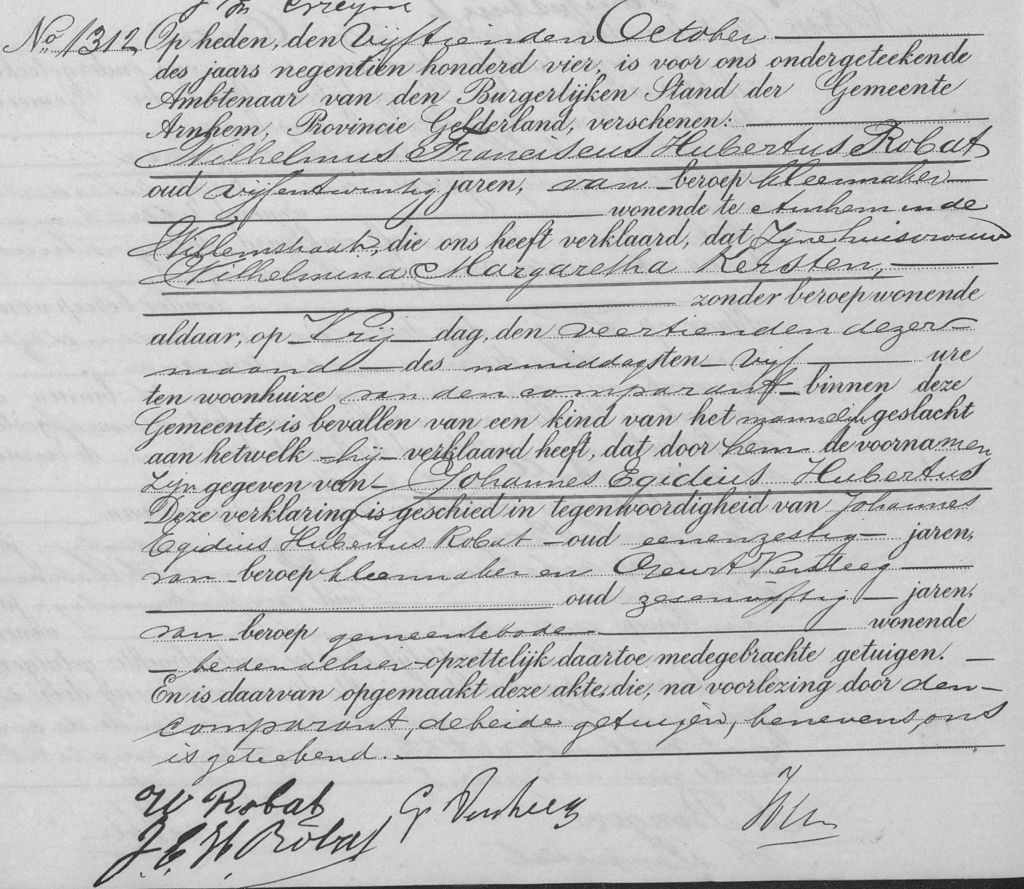 No 1312 Op heden, den Vijftienden October
des jaars negentien honderd vier, is voor ons ondergeteekende
Ambtenaar van den Burgerlijken Stand der Gemeente
Arnhem, Provincie Gelderland, verschenen:
Wilhelmus Franciscus Hubertus Robat
oud vijfentwintig jaren, van beroep kleermaker
wonende te Arnhem in de
Willemstraat, die ons heeft verklaard, dat Zijne huisvrouw
Wilhelmina Margaretha Kersten,
zonder beroep wonende
aldaar, op Vrij dag, den veertienden dezer
maand des namiddags ten vijf ure
ten woonhuize van den comparant binnen deze
Gemeente, is bevallen van een kind van het mannelijk geslacht
aan hetwelk hij verklaard heeft, dat door hem de voornamen
zijn gegeven van Johannes Egidius Hubertus
Deze verklaring is geschied in tegenwoordigheid van Johannes
Egidius Hubertus Robat oud eenenzestig jaren,
van beroep kleermaker en Geurt Versteeg
oud zesenvijftig jaren,
van beroep gemeentebode wonende
beiden alhier opzettelijk daartoe medegebrachte getuigen.
En is daarvan opgemaakt deze akte, die, na voorlezing door den
comparant, de beide getuigen, benevens ons
is geteekend.
W Robat
J. E. H. Robat